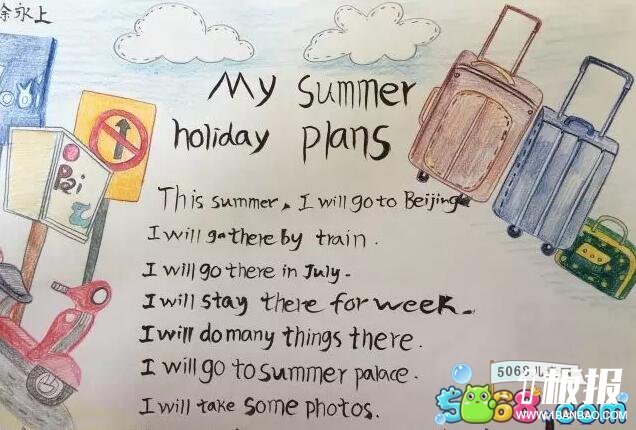 余永上
My summer
holiday plans
This summer, I will go to Beijing
I will go there by train.
I will go there in July.
I will stay there for week.
I will do many things there.
I will go to summer palace.
I will take some photos.
5068儿
板报
5068.com
WWW.1BANBAO.COM